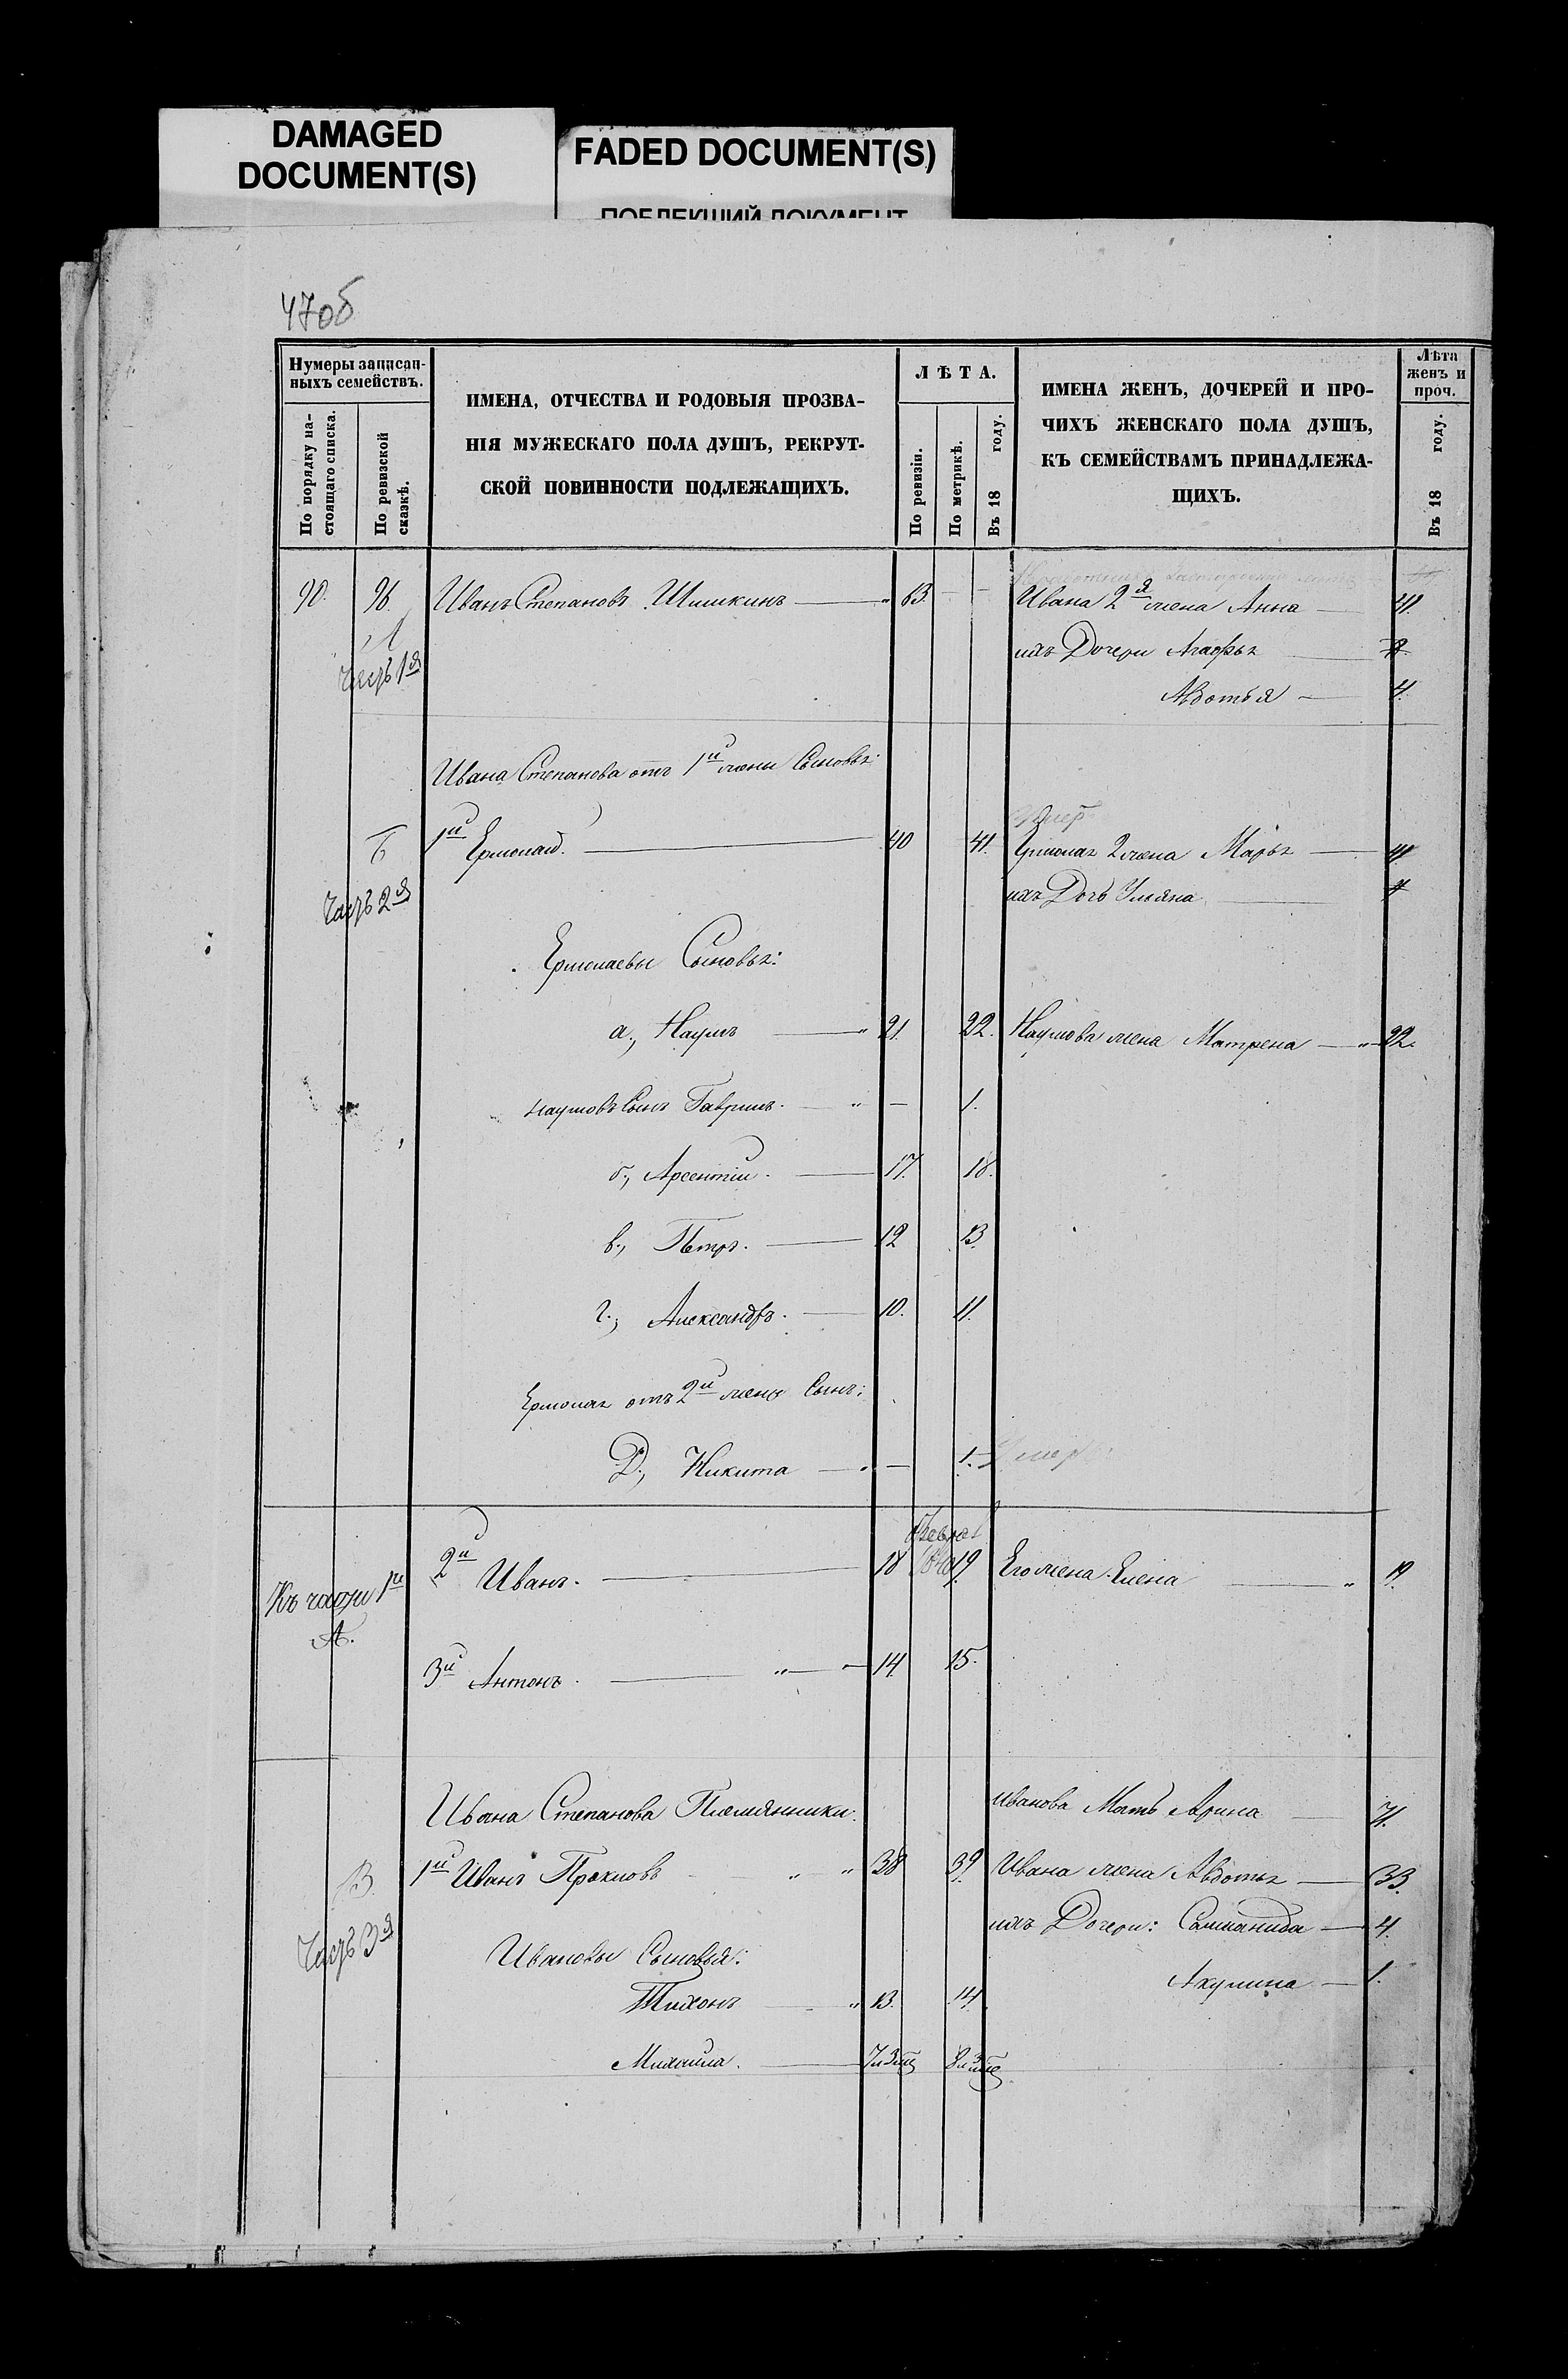 DAMAGED
DOCUMENT(S)
FADED DOCUMENT(S)
ПОБЛЕКШИЙ ДОКУМЕНТ
47об
Нумеры записан-
ныхъ семействъ.
По порядку на-
стоящаго списка.
По ревизской
сказкѣ.
ИМЕНА, ОТЧЕСТВА И РОДОВЫЯ ПРОЗВА-
НІЯ МУЖЕСКАГО ПОЛА ДУШЪ, РЕКРУТ-
СКОЙ ПОВИННОСТИ ПОДЛЕЖАЩИХЪ.
ЛѢТА.
По ревизіи.
По метрикѣ.
Въ 18 году.
ИМЕНА ЖЕНЪ, ДОЧЕРЕЙ И ПРО-
ЧИХЪ ЖЕНСКАГО ПОЛА ДУШЪ,
КЪ СЕМЕЙСТВАМЪ ПРИНАДЛЕЖА-
ЩИХЪ.
Лѣта
женъ и
проч.
Въ 18 году.
90. 96. Иванъ Степановъ Шишкинъ — " 63. — — Ивана 2я жена Анна — 41.
ихъ Дочери Агафьѣ —
Часть 1я
Авдотья — 4.
Ивана Степанова отъ 1й жены Сыновьѣ:
Б 1й Ермолай. — 40 41. Ермолаѣ 2 жена Марьѣ — 41
ихъ Дочь Ульяна —
Часть 2я
Ермолаевы Сыновьѣ:
а., Наумъ — " 21. 22. Наумова жена Матрена — " 22.
Наумовъ Сынъ Гаврилъ. — " — 1.
б., Арсентій. — 17. 18.
в., Петръ. — 12 13.
г., Александръ. — 10. 11.
Ермолаѣ отъ 2й жены Сынъ:
Д., Никита — " — 1. Умеръ
2й Иванъ. — 18 19. Его жена Елена — " 19.
Къ части 1й
А.
3й Антонъ. — " — 14. 15.
Ивана Степанова Племянники. Иванова Мать Арина — 71.
В. 1й Иванъ Прокловъ — " — " 38 39. Ивана жена Авдотьѣ — 33.
ихъ Дочери: Соломанида — 4.
Часть 3я
Ивановы Сыновья:
Акулина — 1.
Тихонъ — " 13. 14.
Михайла. —